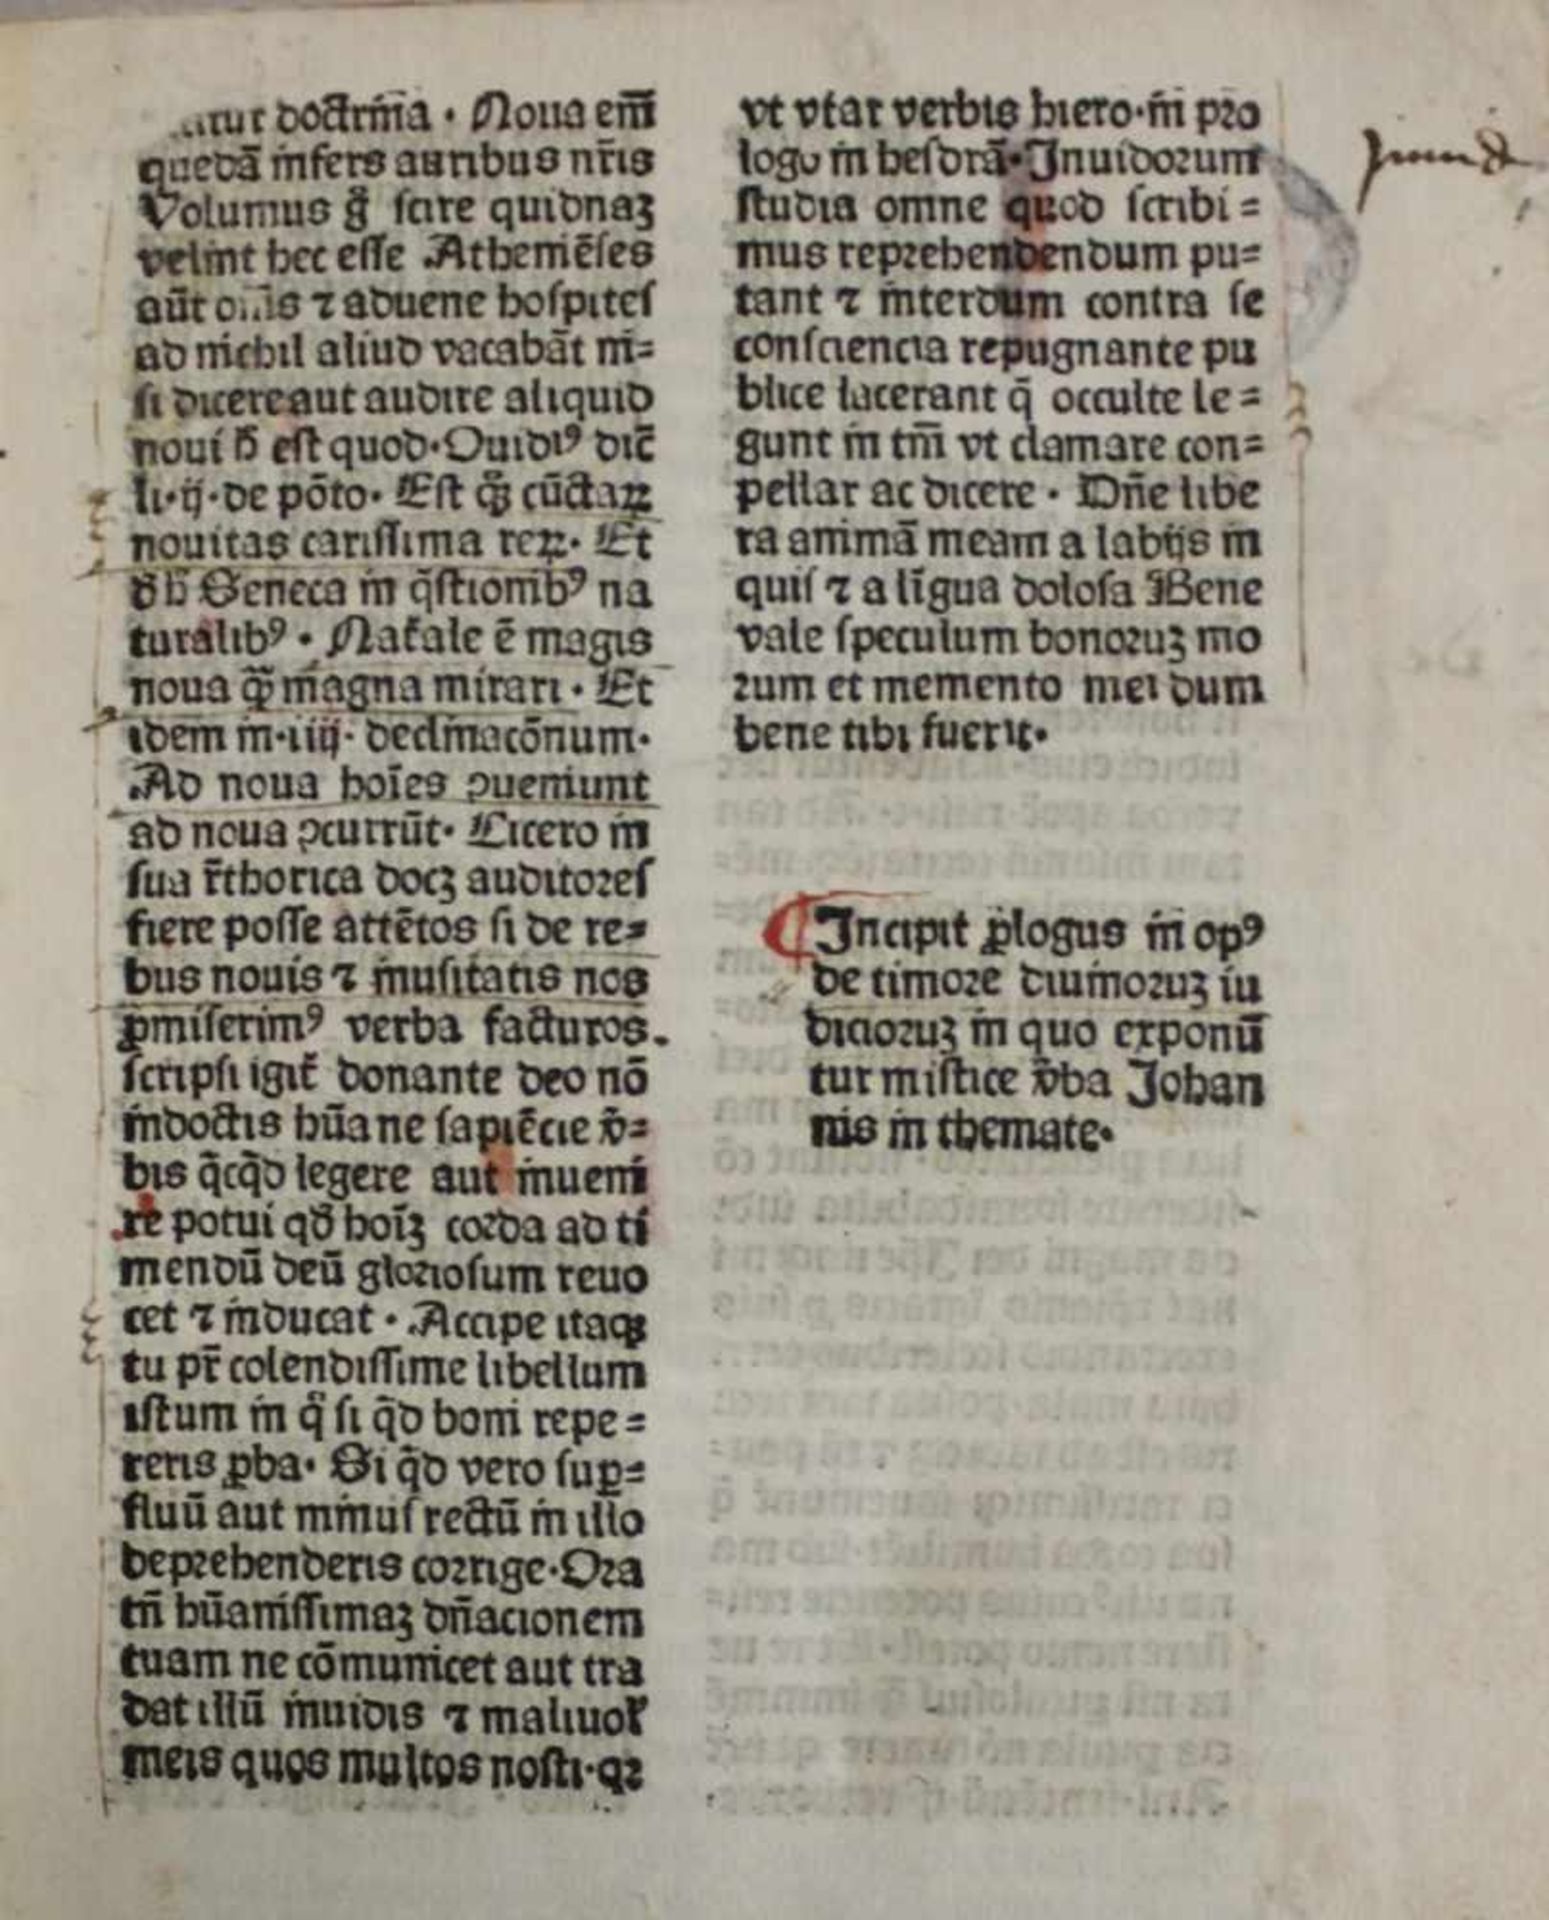 doctrina · Noua em̄
quedā infers auribus nr̄is
Volumus g̊ scire quidnaꝫ
velint hec esse Atheniēses
aūt ⁊ aduene hospites
ad nichil aliud vacabāt ni=
si dicere aut audire aliquid
noui ħ est quod·Ouidiꝰ dic̄
li·ij·de pōto· Est qꝫ cūctaꝝ
nouitas carissima reꝝ· Et
Seneca in q̄stionibꝰ na
turalibꝰ · Nat̄ale ē magis
noua qꝫ̄ magna mirari · Et
idem in·iiij· declinacōnum·
Ad noua hoīes ꝯueniunt
ad noua ꝯcurrūt· Cicero in
sua r̄thorica docꝫ auditores
fiere posse attētos si de re=
bus nouis ⁊ inusitatis nos
ꝓmiserimꝰ verba facturos.
scripsi igit̄ donante deo nō
indoctis hūane sapiēcie v̄=
bis q̄cq̄d legere aut inueni
re potui qd̄ hoīꝫ corda ad ti
mendū deū gloriosum reuo
cet ⁊ inducat · Accipe itaqꝫ
tu pr̄ colendissime libellum
istum in q̊ si q̄d boni repe=
reris ꝓba· Si q̄d vero suꝑ=
fluū aut minus rectū in illo
deprehenderis corrige·Ora
tn̄ hūanissimaꝫ dn̄acionem
tuam ne cōmunicet aut tra
dat illū inuidis ⁊ maliuoꝝ
meis quos multos nosti·qꝛ
vt vtar verbis hiero·in pro
logo in hesdrā·Inuidorum
studia omne quod scribi=
mus reprehendendum pu=
tant ⁊ interdum contra se
consciencia repugnante pu
blice lacerant q̄ occulte le=
gunt in tm̄ vt clamare con=
pellar ac dicere · Dn̄e libe
ra animā meam a labijs in
quis ⁊ a līgua dolosa Bene
vale speculum bonoruꝫ mo
rum et memento mei dum
bene tibi fuerit·
Incipit ꝓlogus in opꝰ
de timore diuinoruꝫ iu
dicioruꝫ in quo exponū
tur mistice v̄ba Johan
nis in themate·